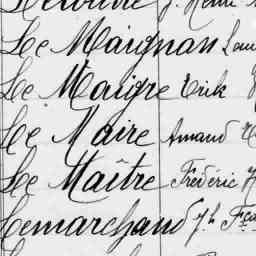 Le Maignan
Le Maigre Erik
Le Maire Amand
Le Maître Frédéric
Lemarchand Jh Fçs